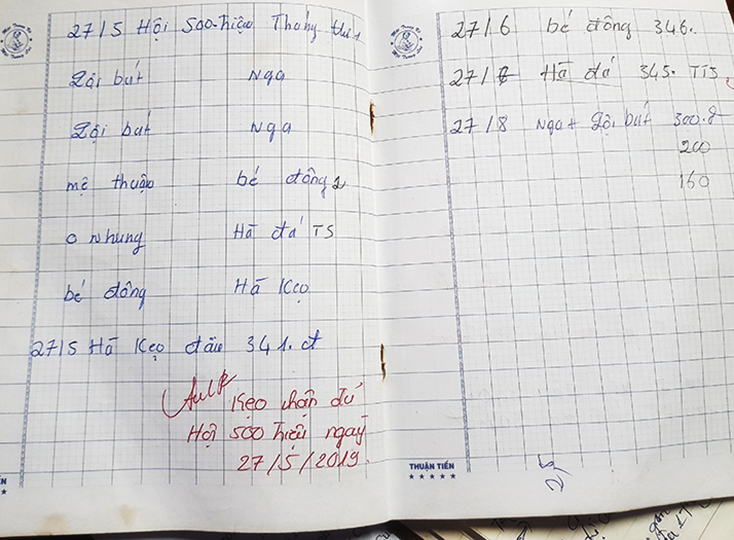 27/5 Hội 500 triệu Tháng
Lội bứt Nga
Lội bứt Nga
mệ thuận bé đông 2
o nhung Hà đá TS
bé đông Hà Kẹo
27/5 Hà Kẹo đầu 341. đ
Kẹo nhận đủ
Hội 500 triệu ngày
27/5/2019.
THUẬN TIẾN
27/6 bé đông 346.
27/7 Hà đá 345. TTS
27/8 Nga + Lội bứt 300.
200
160
THUẬN TIẾN